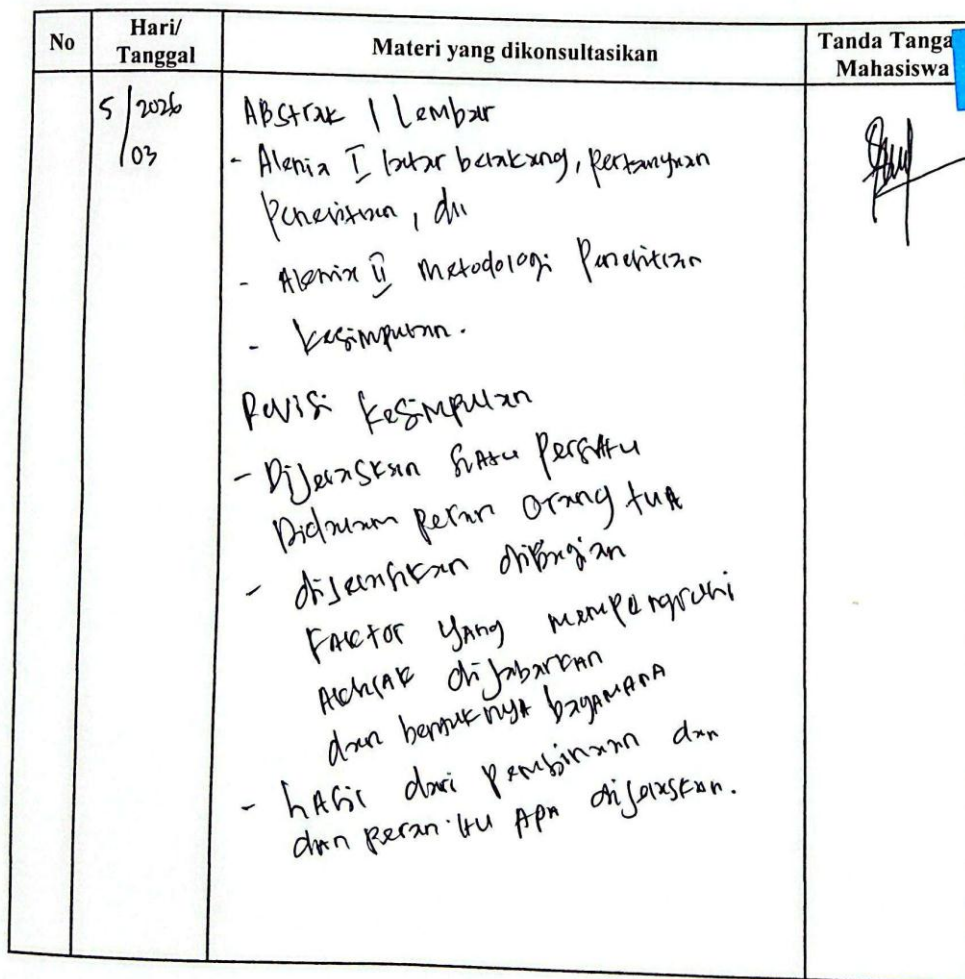 No
Hari/
Tanggal
Materi yang dikonsultasikan
Tanda Tanga
Mahasiswa
5/2026
/03
Abstrak 1 Lembar
- Alenia I latar belakang, pertanyaan
Penelitian, dll
- Alenia II Metodologi Penelitian
- Kesimpulan.
Revisi Kesimpulan
- Dijelaskan satu persatu
Didalam peran orang tua
- dijelaskan dibagian
Faktor yang mempengruhi
Akhlak di jabarkan
dan bentuknya bagamana
- hasil dari pembinaan dan
dan peran itu apa dijelaskan.